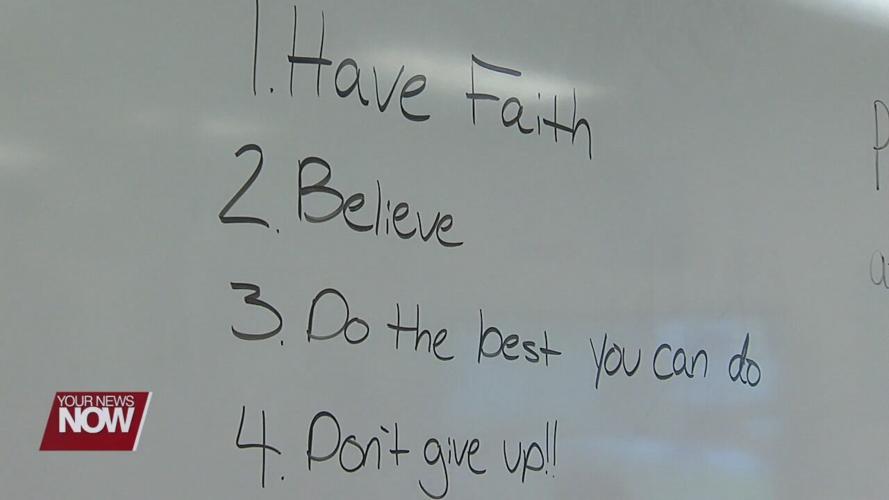 1. Have Faith
2. Believe
3. Do the best you can do
4. Don't give up!!
YOUR NEWS
NOW